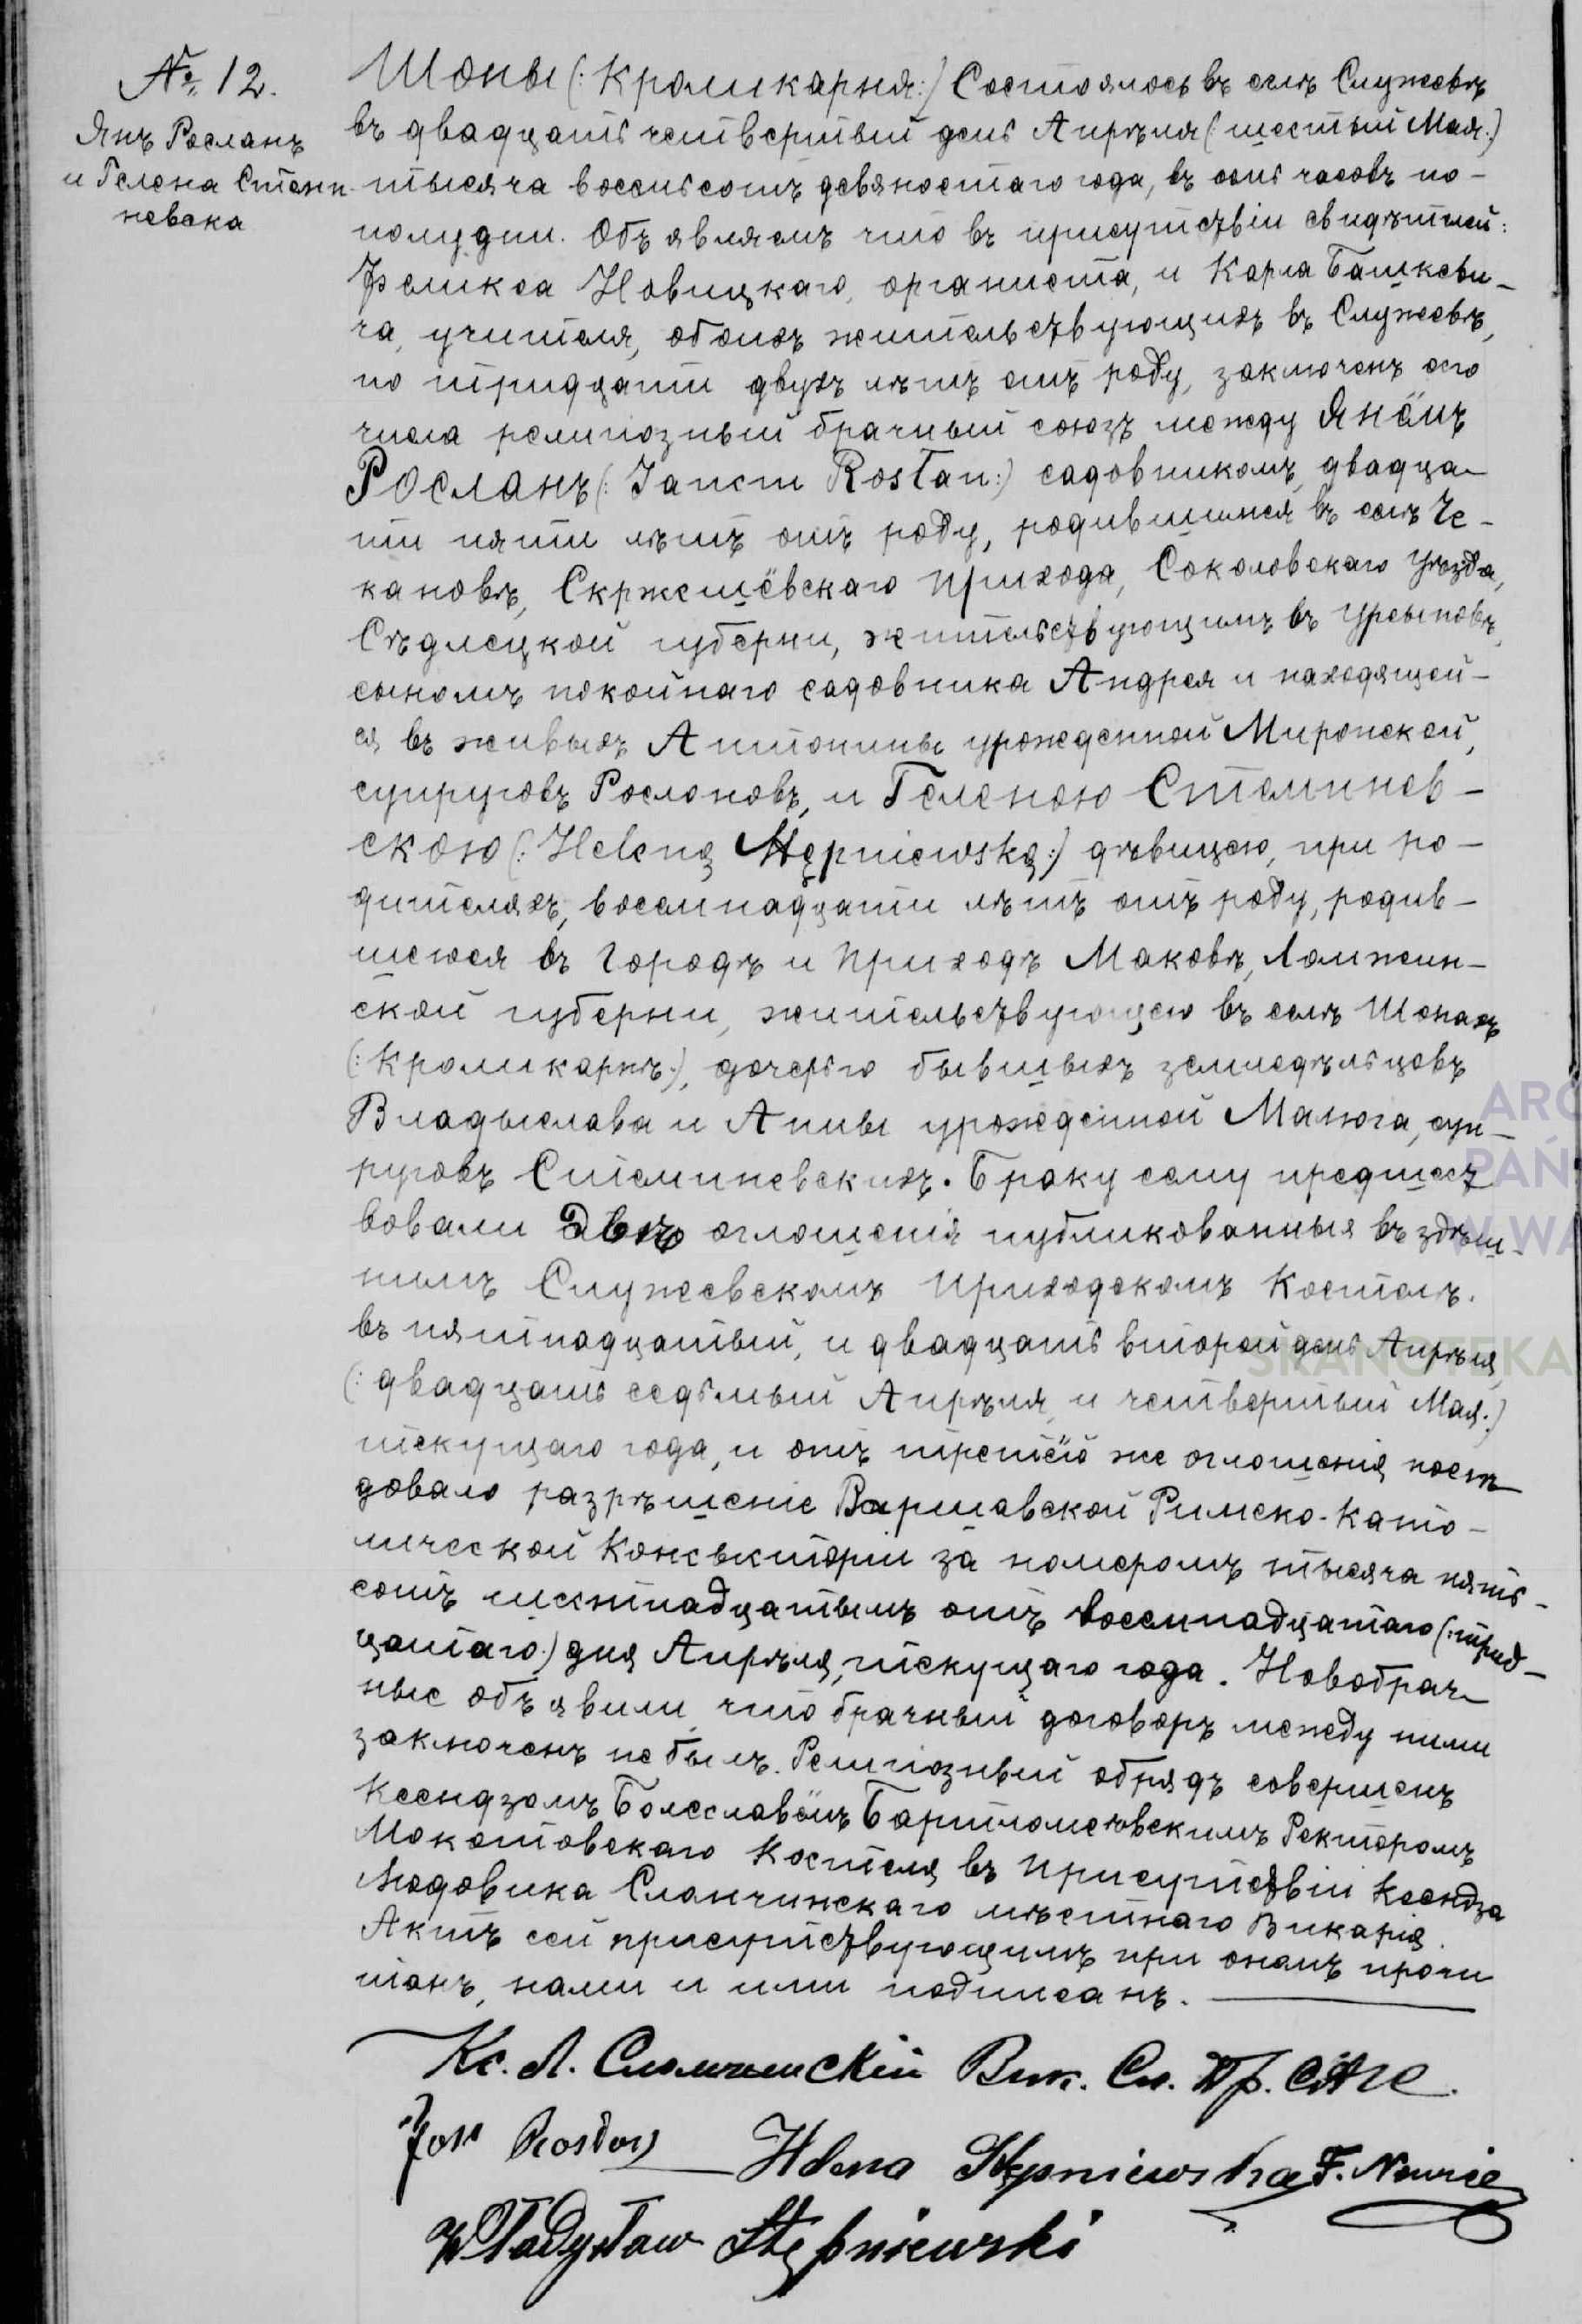 № 12.
Янъ Росланъ
и Гелена Стемп
невска
Шопы (: Кроликарня:) Состоялось въ селѣ Служевѣ
въ двадцать четвертый день Апрѣля (: шестый Мая:)
тысяча восемьсотъ девяностаго года, въ семь часовъ по-
полудни. Объявляемъ что въ присутствіи свидѣтлей:
Феликса Новицкаго, органиста, и Карла Башкеви-
ча, учителя, обоихъ жительствующихъ въ Служевѣ,
по тридцати двухъ лѣтъ отъ роду, заключенъ сего
числа религіозный брачный союзъ между Янёмъ
Росланъ (: Janem Rosłan:) садовникомъ, двадца-
ти пяти лѣтъ отъ роду, родившимся въ селѣ Че-
кановѣ, Скржешёвскаго прихода, Соколовскаго уѣзда,
Сѣдлецкой губерни, жительствующимъ въ Урсыновѣ,
сыномъ покойнаго садовника Андрея и находящей-
ся въ живыхъ Антонины урожденной Миронской,
супруговъ Рослановъ, и Геленою Стемпнев-
скою (: Heleną Stępniewską:) дѣвицею, при ро-
дителяхъ, восемнадцати лѣтъ отъ роду, родив-
шеюся въ городѣ и приходѣ Маковѣ, Ломжин-
ской губерни, жительствующею въ селѣ Шопахъ
(: Кроликарнѣ:), дочерью бывшыхъ земледѣльцовъ
Владыслава и Анны урожденной Малюга, суп-
руговъ Стемпневскихъ. Браку сему предшест
вовали двѣ оглошенія публикованныя въ здѣш-
нимъ Служевскомъ приходскомъ Костелѣ.
въ пятнадцатый, и двадцать второй день Апрѣля
(: двадцать седьмый Апрѣля, и четвертый Мая:)
текущаго года, и отъ третьёй же оглошенія послѣ
довало разрѣшеніе Варшавской Римско-Като-
лической Консысторіи за номеромъ тысяча пять-
сотъ шестнадцатымъ отъ восемнадцатаго (: трид-
цатаго:) дня Апрѣля, текущаго года. Новобрач-
ные объявили, что брачный договоръ между ними
заключенъ не былъ. Религіозный обрядъ совершенъ
Ксендзомъ Болеславёмъ Бартломеёвскимъ Ректоромъ
Мокотовскаго Костеля въ присутствіи Ксендза
Людовика Сломчинскаго мѣстнаго Викарія.
Актъ сей присутствующимъ при ономъ прочи
танъ, нами и ими подписанъ.
Кс. Л. Сломчинскій Вик. Сл. Пр. САГС.
Jan Rosłan Helena Stępniewska F. Nowic
Władysław Stępniewski
ARC
PAŃ
W WA
SKANOTEKA